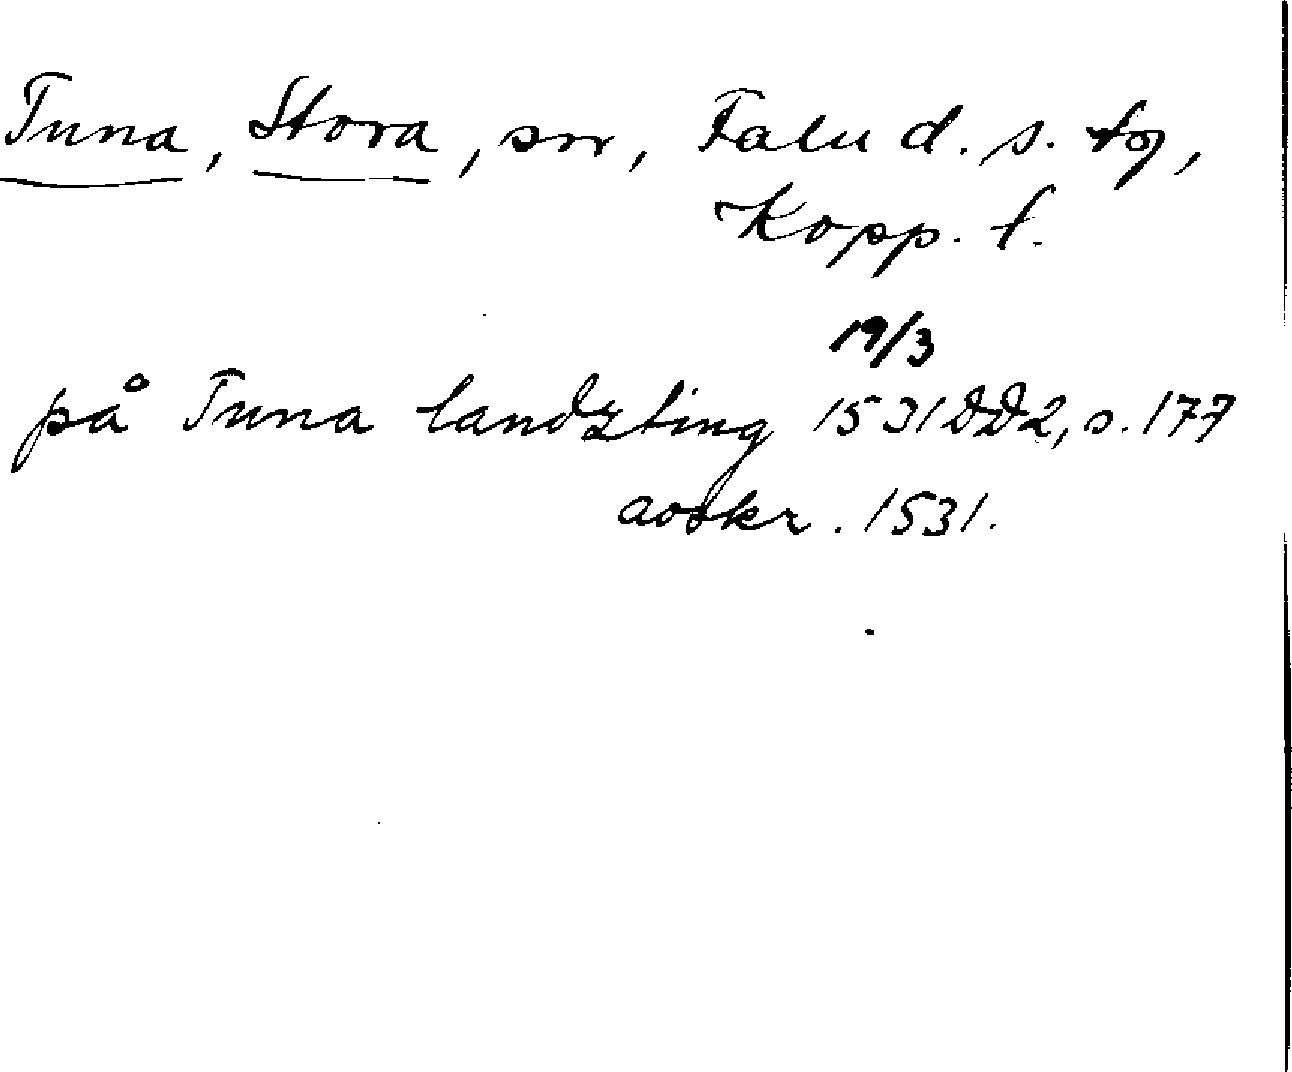 Tuna, Stora, sn, Falu d. s. tg,
Kopp. l.
19/3
på Tuna landzting 1531 DD2, s. 177
avskr. 1531.